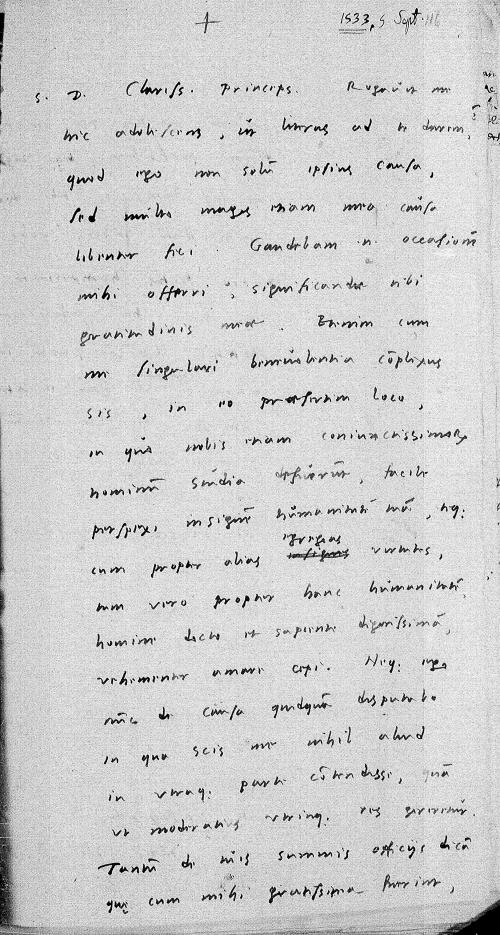 1533, 5 Sept.
S. D. Clariss. princeps. Rogavit me
hic adolescens, ut literas ad te darem,
quod ego non solū ipsius causa,
sed multo magis etiam mea causa
libenter feci. Gaudebam .n. occasionē
mihi offerri, significandae tibi
gratitudinis meae. Etenim cum
me singulari benivolentia cōplexus
sis, in eo praesertim loco,
in quo nobis etiam coniunctissimorū
hominū studia defuerūt, facile
perspexi insignē humanitatē tuā, teq:
cum propter alias egregias virtutes,
tum vero propter hanc humanitatē,
homine docto et sapiente dignissimā,
vehementer amare cepi. Neq: ego
nūc de causa quidquā disputabo
in qua scis me nihil aliud
in utraq: parte cōtendisse, quā
ut moderatius utrinq: res gereretur.
Tantū de tuis summis officijs dicā
quae cum mihi gratissima fuerint,